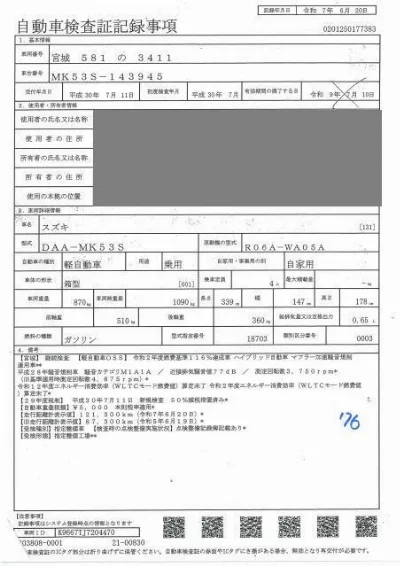 記録年月日 令和 7年 6月 20日
自動車検査証記録事項
0201250177383
1．基本情報
車両番号 宮城 581 の 3411
車台番号 MK53S－143945
交付年月日 平成 30年 7月 11日 初度検査年月 平成 30年 7月 有効期間の満了する日 令和 9年 7月 10日
2．使用者・所有者情報
使用者の氏名又は名称
使用者の住所
所有者の氏名又は名称
所有者の住所
使用の本拠の位置
3．車両詳細情報
車名 スズキ [131]
型式 DAA－MK53S 原動機の型式 R06A－WA05A
自動車の種別 軽自動車 用途 乗用 自家用・事業用の別 自家用
車体の形状 箱型 [001] 乗車定員 4人 最大積載量 －kg
車両重量 870kg 車両総重量 1090kg 長さ 339cm 幅 147cm 高さ 178cm
前軸重 510kg 後軸重 360kg 総排気量又は定格出力 0.65L
燃料の種類 ガソリン 型式指定番号 18703 類別区分番号 0003
4．備考
【宮城】 継続検査 【軽自動車OSS】 令和2年度燃費基準116％達成車 ハイブリッド自動車 マフラー加速騒音規制
適用車＊
平成28年騒音規制車 騒音カテゴリM1A1A ／ 近接排気騒音値77dB ／ 測定回転数3，750rpm＊
（旧基準適用時測定回転数4，875rpm）＊
令和12年度エネルギー消費効率（WLTCモード燃費値）算定未了 令和2年度エネルギー消費効率（WLTCモード燃費値）
算定未了＊
【29年度税制】 平成30年7月11日 新規検査 50％被税措置済み＊
【自動車重量税額】￥5，000 本則税率適用＊
【走行距離計表示値】121，300km（令和7年6月20日）＊
【旧走行距離計表示値】87，300km（令和5年6月19日）＊
【受検種別】指定整備車 【検査時の点検整備実施状況】点検整備記録簿記載あり＊
【受検形態】指定整備工場＊＊
176
【注意事項】
記録事項はシステム登録時点の情報となります
車両ID K9667IJ7204470
003808-0001 21-00830